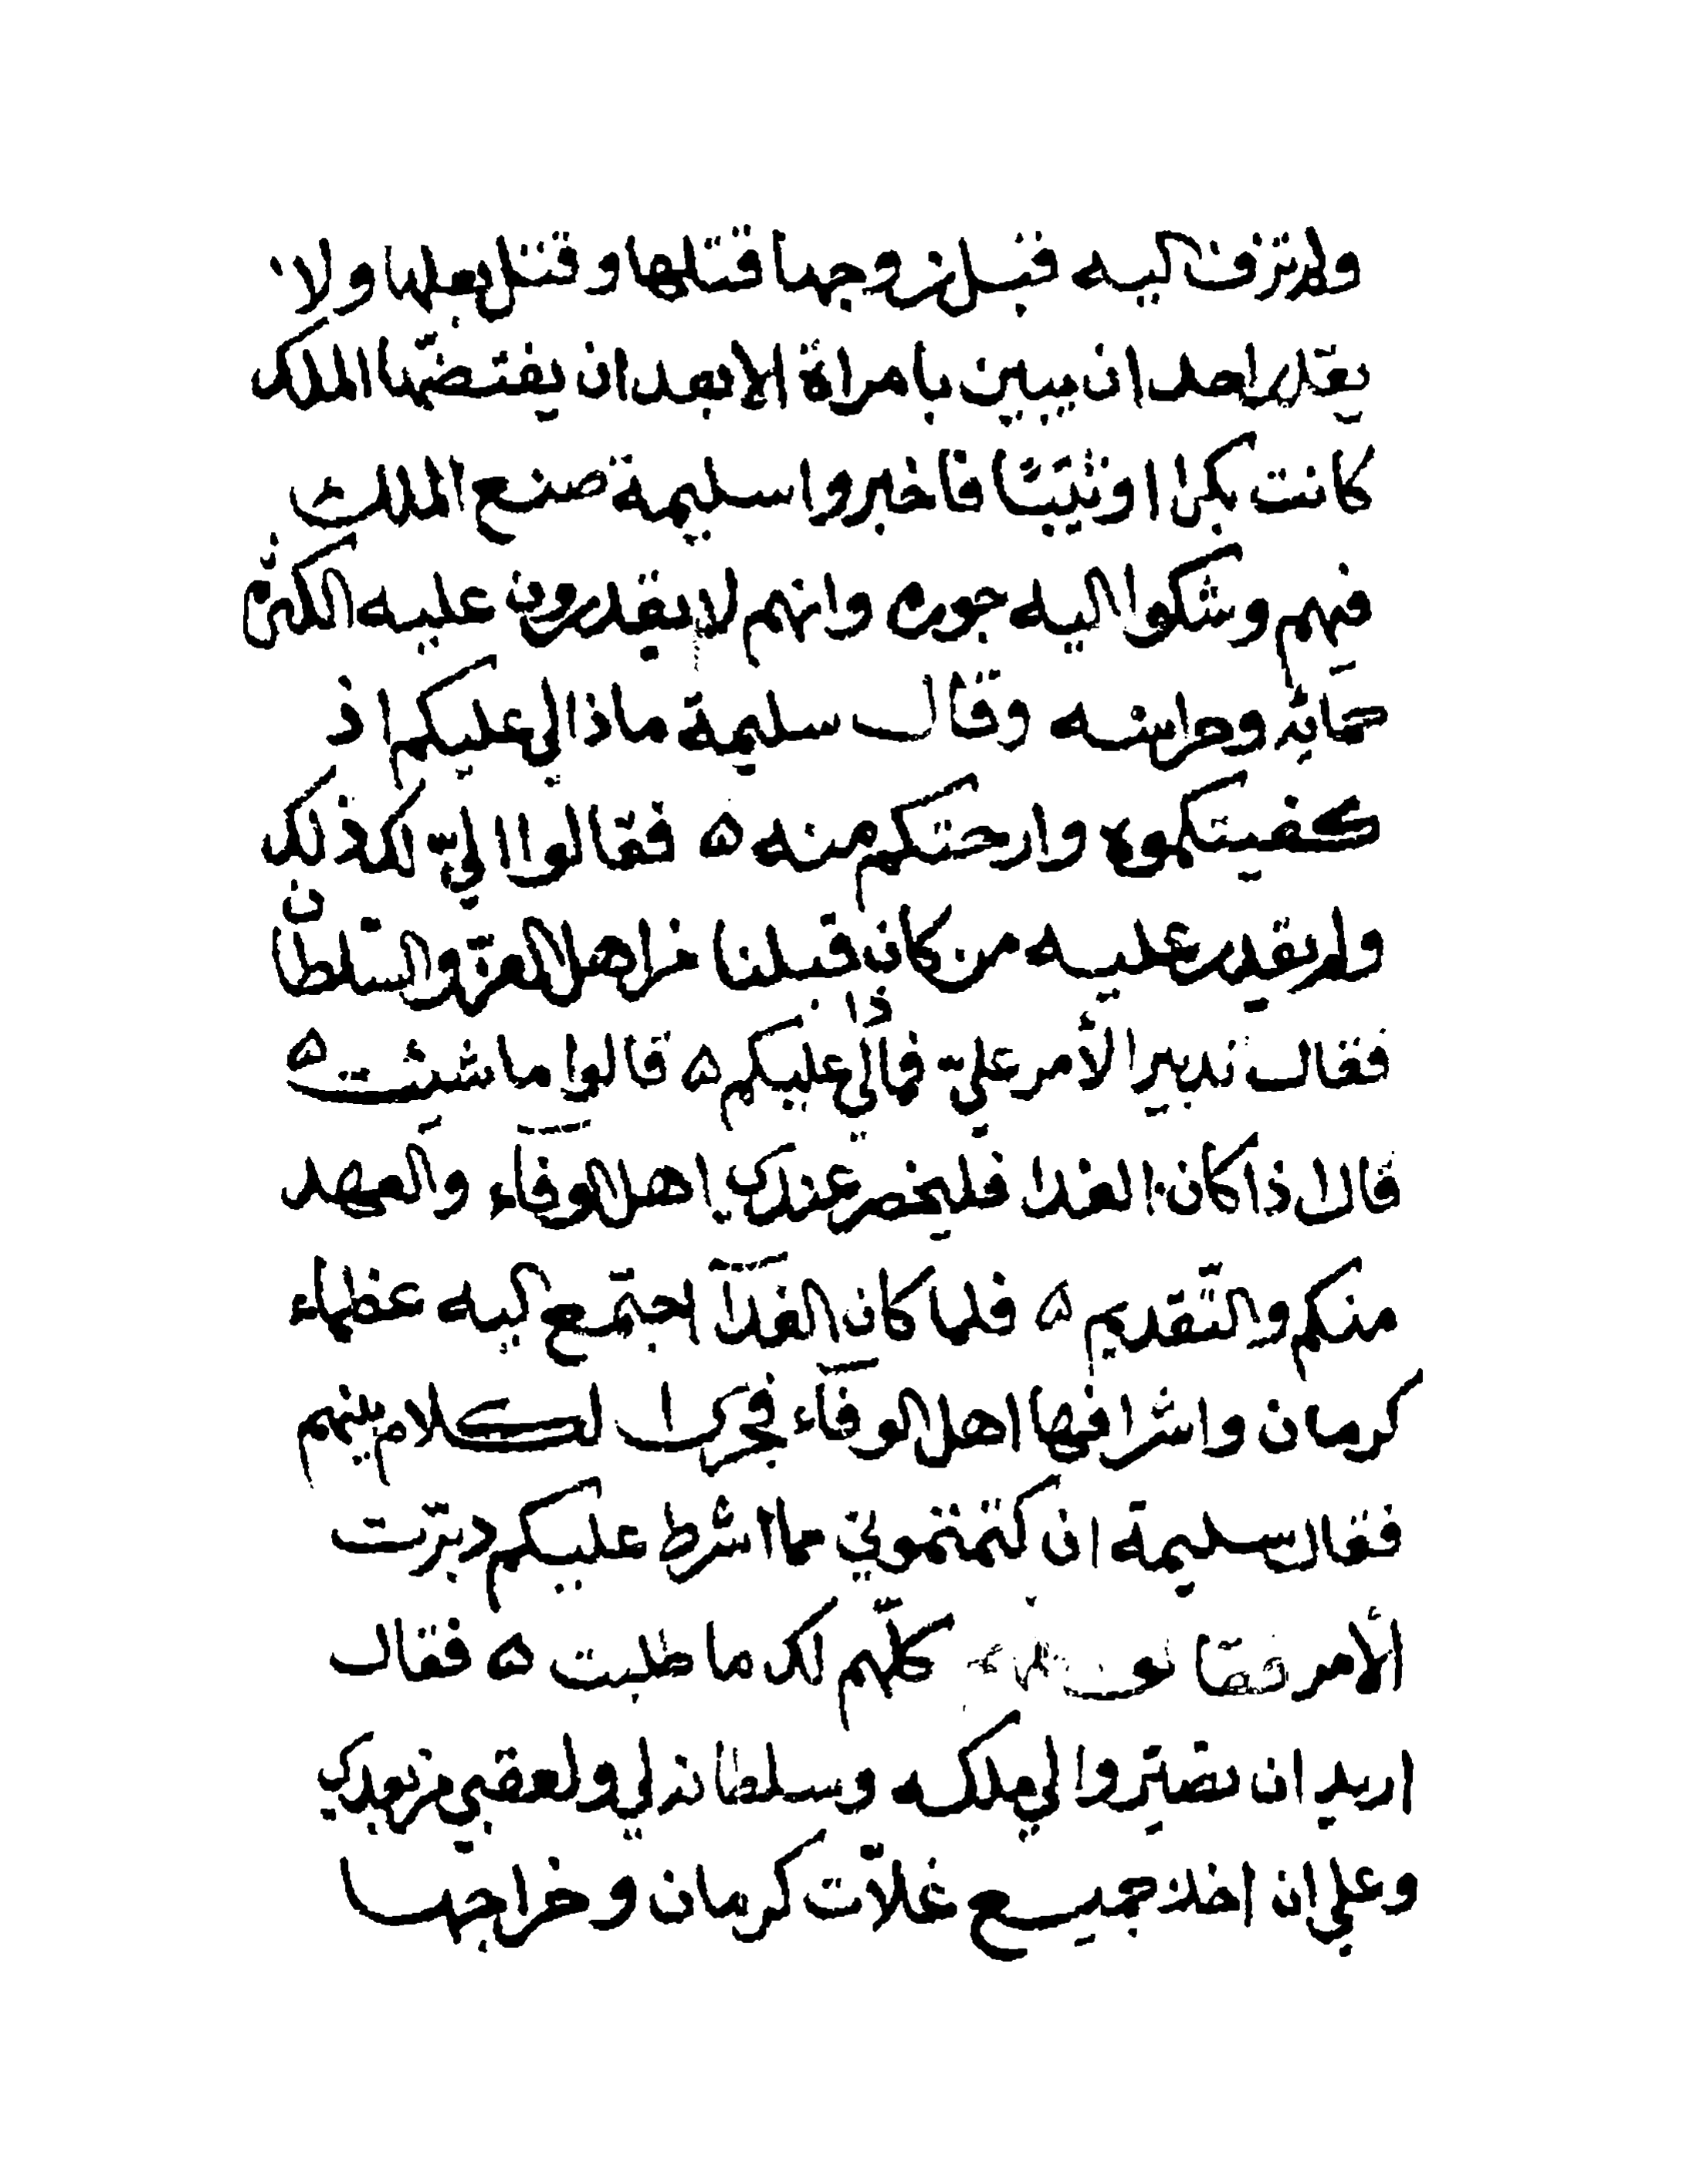 ولم تزف اليه قبل زوجها قتلها وقتل بعلها ولا
يقدر احد ان يبين بامراة الا بعد ان يفتضّها الملك
كانت بكرا او ثيبًا فاخبروا سليمة صنع الملك
فيهم وشكوا اليه جوره وانهم لا يقدرون عليه لكثرة
حماته وحراسه وقال سليمة ماذا لي عليكم اذ
كفيتكموه وارحتكم منه ۵ فقالوا اليّ لك ذلك
ولم يقدر عليه من كان قبلنا من اهل العزّ والسّلطان
فقال تدبير الأمر عليّ فماذا لي عليكم ۵ قالوا ما شئت ۵
قال اذا كان الغدا فليحضر عندي اهل الوفآء والعهد
منكم والتّقديم ۵ فلما كان الغدآ اجتمع اليه عظماء
كرمان واشرافها اهل الوفآء فجرى الكلام بينهم
فقال سليمة ان كتمتموني مما اشرط عليكم دبّرت
الأمر كلّهم لك ما طلبت ۵ فقال
اريد ان تصيّروا لي ملكه وسلطانه لي ولعقبي من بعدي
وعلي ان اخذ جميع غلاّت كرمان وخراجها